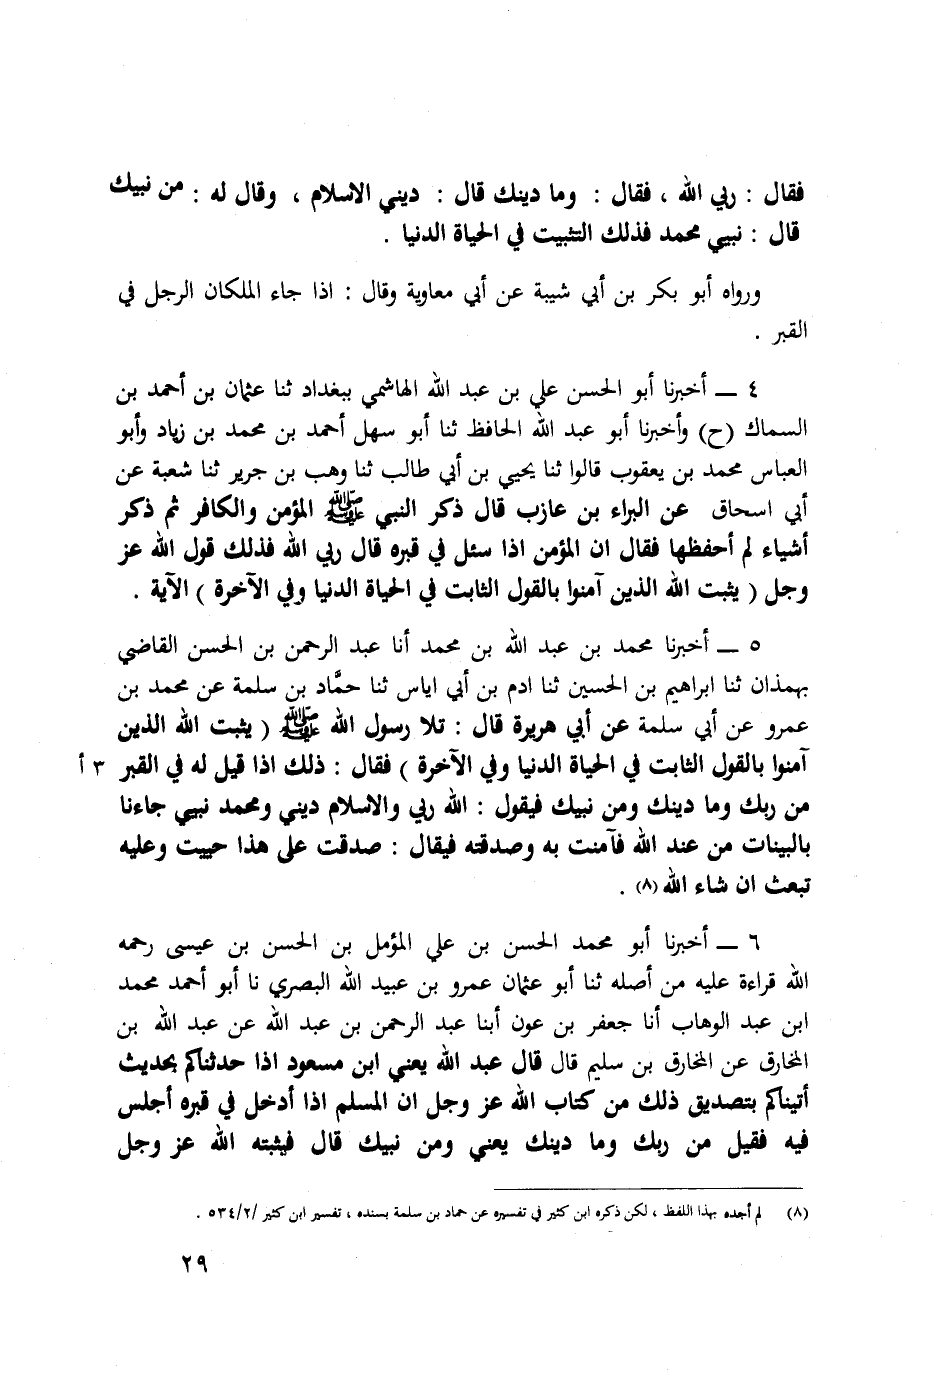 فقال : ربي الله ، فقال : وما دينك قال : ديني الاسلام ، وقال له : من نبيك
قال : نبيي محمد فذلك التثبيت في الحياة الدنيا .
ورواه أبو بكر بن أبي شيبة عن أبي معاوية وقال : اذا جاء الملكان الرجل في
القبر .
٤ ــ أخبرنا أبو الحسن علي بن عبد الله الهاشمي ببغداد ثنا عثمان بن أحمد بن
السماك (ح) وأخبرنا أبو عبد الله الحافظ ثنا أبو سهل أحمد بن محمد بن زياد وأبو
العباس محمد بن يعقوب قالوا ثنا يحيى بن أبي طالب ثنا وهب بن جرير ثنا شعبة عن
أبي اسحاق عن البراء بن عازب قال ذكر النبي ﷺ المؤمن والكافر ثم ذكر
أشياء لم أحفظها فقال ان المؤمن اذا سئل في قبره قال ربي الله فذلك قول الله عز
وجل ( يثبت الله الذين آمنوا بالقول الثابت في الحياة الدنيا وفي الآخرة ) الآية .
٥ ــ أخبرنا محمد بن عبد الله بن محمد أنا عبد الرحمن بن الحسن القاضي
بهمذان ثنا ابراهيم بن الحسين ثنا ادم بن أبي اياس ثنا حمَّاد بن سلمة عن محمد بن
عمرو عن أبي سلمة عن أبي هريرة قال : تلا رسول الله ﷺ ( يثبت الله الذين
آمنوا بالقول الثابت في الحياة الدنيا وفي الآخرة ) فقال : ذلك اذا قيل له في القبر ٣ أ
من ربك وما دينك ومن نبيك فيقول : الله ربي والاسلام ديني ومحمد نبيي جاءنا
بالبينات من عند الله فآمنت به وصدقته فيقال : صدقت على هذا حييت وعليه
تبعث ان شاء الله (٨) .
٦ ــ أخبرنا أبو محمد الحسن بن علي المؤمل بن الحسن بن عيسى رحمه
الله قراءة عليه من أصله ثنا أبو عثمان عمرو بن عبيد الله البصري نا أبو أحمد محمد
ابن عبد الوهاب أنا جعفر بن عون أبنا عبد الرحمن بن عبد الله عن عبد الله بن
المخارق عن المخارق بن سليم قال قال عبد الله يعني ابن مسعود اذا حدثناكم بحديث
أتيناكم بتصديق ذلك من كتاب الله عز وجل ان المسلم اذا أدخل في قبره أجلس
فيه فقيل من ربك وما دينك يعني ومن نبيك قال فيثبته الله عز وجل
(٨) لم أجده بهذا اللفظ ، لكن ذكره ابن كثير في تفسيره عن حماد بن سلمة بسنده ، تفسير ابن كثير /٥٣٤/٢ .
٢٩